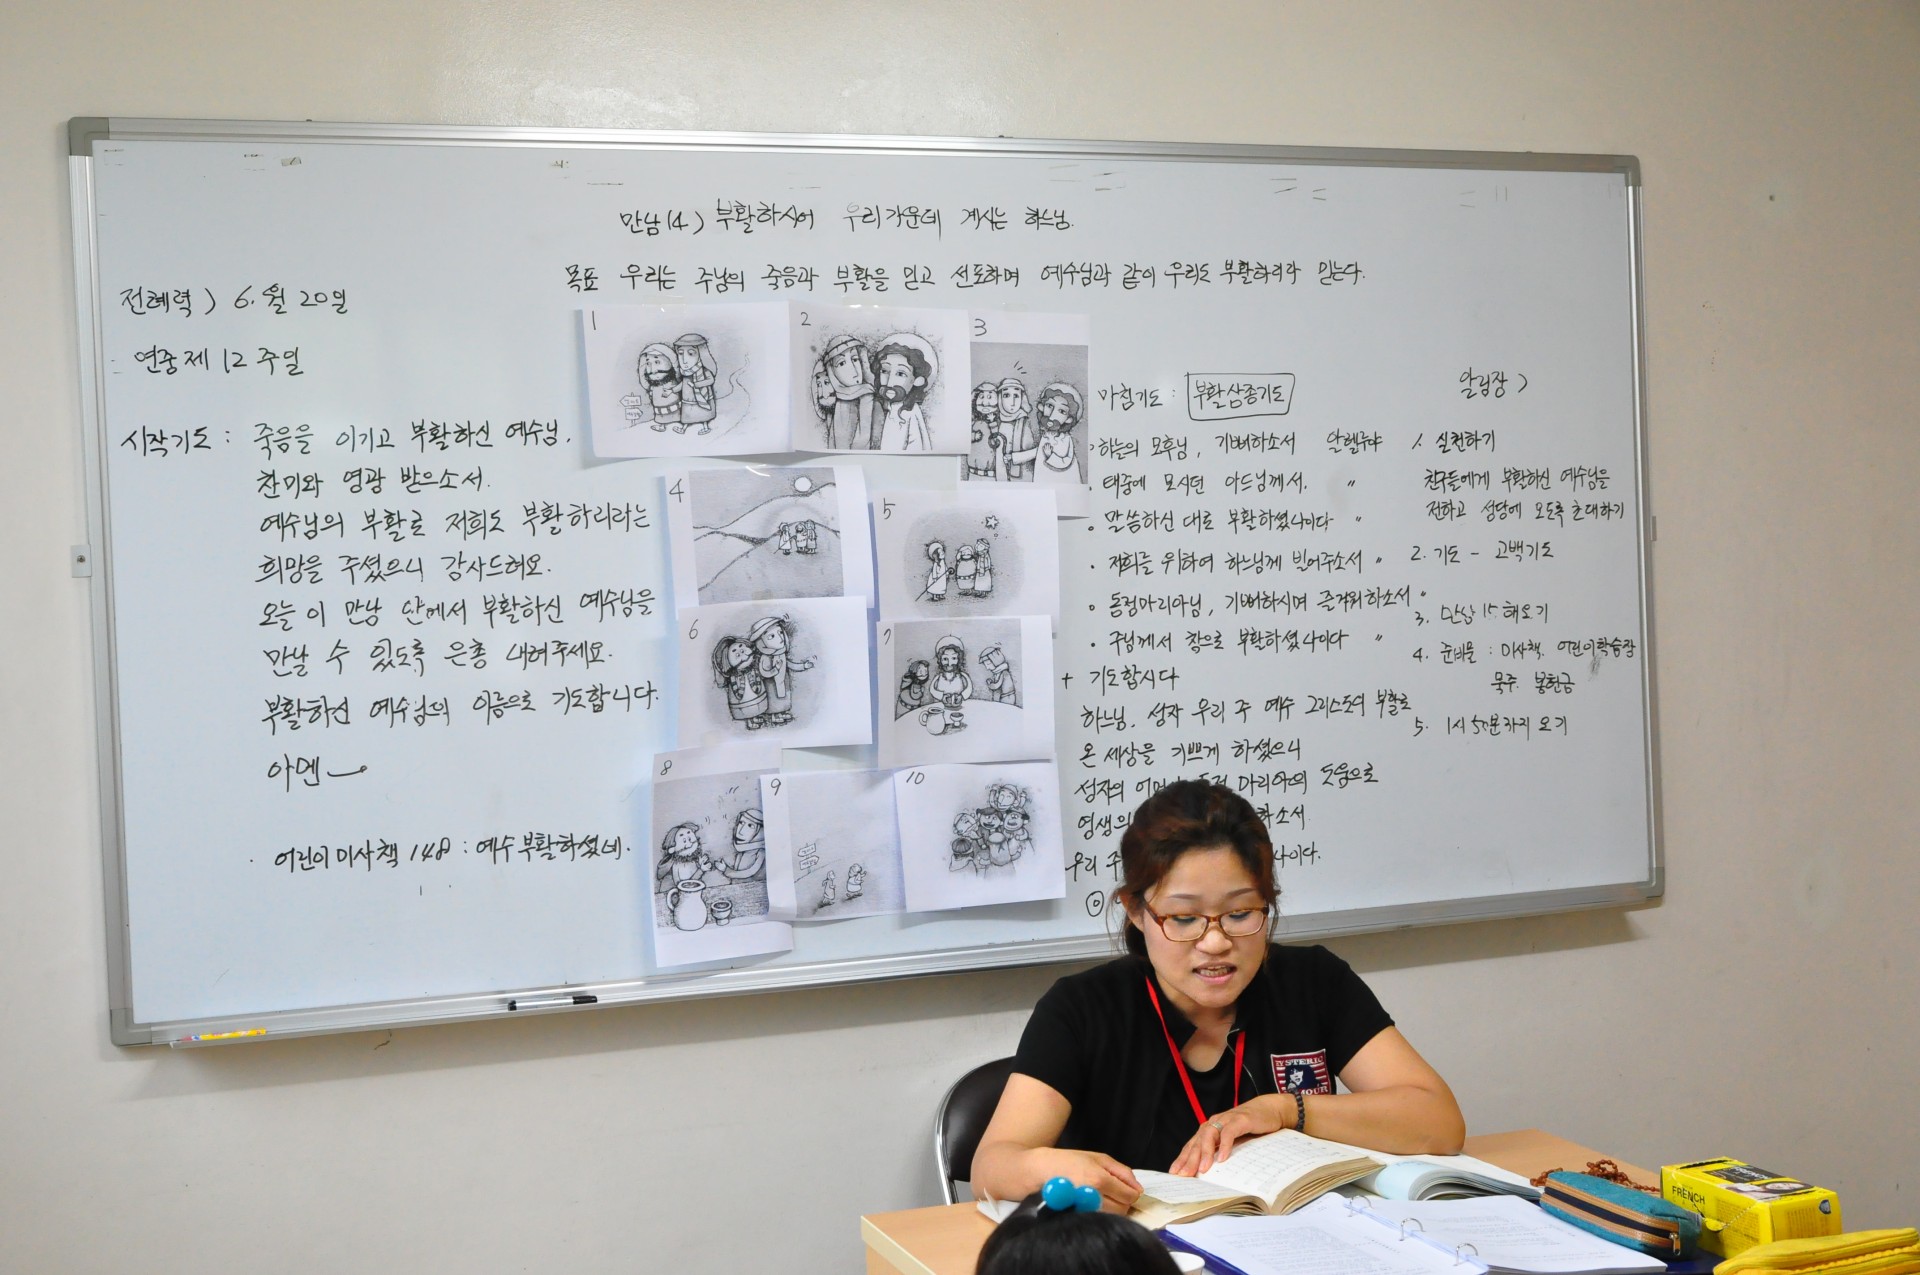 만남(4) 부활하시어 우리 가운데 계시는 하느님.
목표 우리는 주님의 죽음과 부활을 믿고 선포하며 예수님과 같이 우리도 부활하리라 믿는다.
전례력) 6.월 20일
연중 제 12 주일
시작기도 : 죽음을 이기고 부활하신 예수님,
찬미와 영광 받으소서.
예수님의 부활로 저희도 부활하리라는
희망을 주셨으니 감사드려요.
오늘 이 만남 안에서 부활하신 예수님을
만날 수 있도록 은총 내려주세요.
부활하신 예수님의 이름으로 기도합니다.
아멘
어린이 미사책 148 : 예수 부활하셨네.
1
2
3
4
5
6
7
8
9
10
마침기도 : 부활삼종기도
하늘의 모후님, 기뻐하소서 알렐루야
태중에 모시던 아드님께서. "
말씀하신 대로 부활하셨나이다 "
저희를 위하여 하느님께 빌어주소서 "
동정마리아님, 기뻐하시며 즐거워하소서 "
주님께서 참으로 부활하셨나이다 "
+ 기도합시다
하느님, 성자 우리 주 예수 그리스도의 부활로
온 세상을 기쁘게 하셨으니
성자의 마리아의 도움으로
영생의 하소서
우리 주
알림장)
1. 실천하기
친구들에게 부활하신 예수님을
전하고 성당에 오도록 초대하기
2. 기도 - 고백기도
3. 만남 15 해오기
4. 준비물 : 미사책, 어린이학습장
묵주. 봉헌금
5. 1시 50분까지 오기
FRENCH